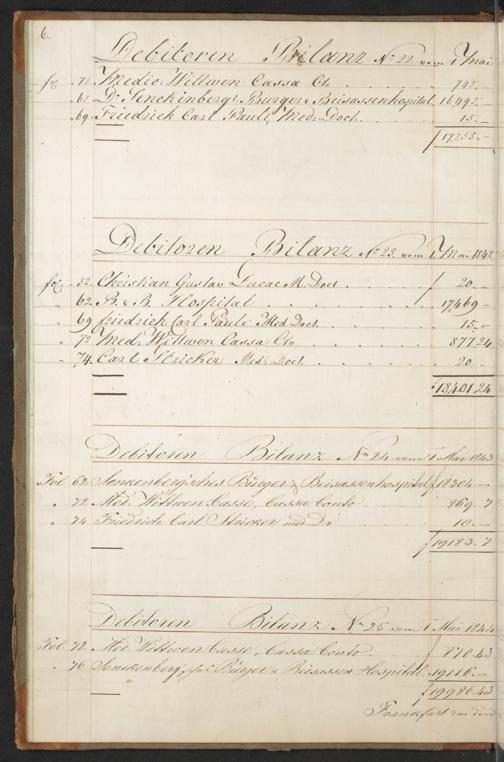 6.
Debitoren Bilanz No 22 vom 1 Mai
fo. 72 Medic: Wittwen Cassa Cto 745.–
„ 62 Dr Senckenberg's Burger & Beisassenhospital 16495.–
„ 69 Friedrich Carl Pauli, Med: Doct. 15.–
f 17255.–
Debitoren Bilanz No 23 vom 1 Mai 1842
fo. 32 Christian Gustav Lucae M. Doct f 20.–
„ 62 B. & B. Hospital 17469.–
„ 69 Friedrich Carl Pauli Med Doct. 15.–
„ 72 Med: Wittwen Cassa Cto 877.24
„ 74 Carl Stricker Med: Doct. 20.–
f 18,401.24
Debitoren Bilanz No 24 vom 1 Mai 1843
Fol 62 Senkenbergisches Bürger & Beisassenhospital f 18304.–
„ 72 Med. Wittwen Casse, Cassa Conto 869.7
„ 74 Friedrich Carl Stricker med. Dr 10.–
f 19183.7
Debitoren Bilanz No 25 vom 1 Mai 1844
Fol 72 Med Wittwen Casse, Cassa Conto f 870.43
„ 76 Senckenbergisches Bürger & Beisassen Hospital 19116.–
f 19986.43
Frankfurt am den